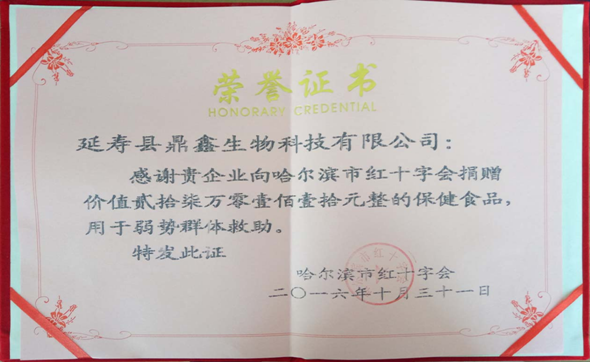 荣誉证书
HONORARY CREDENTIAL
延寿县鼎鑫生物科技有限公司：
感谢贵企业向哈尔滨市红十字会捐赠
价值贰拾柒万零壹佰壹拾元整的保健食品，
用于弱势群体救助。
特发此证
哈尔滨市红十字会
二〇一六年十月三十一日